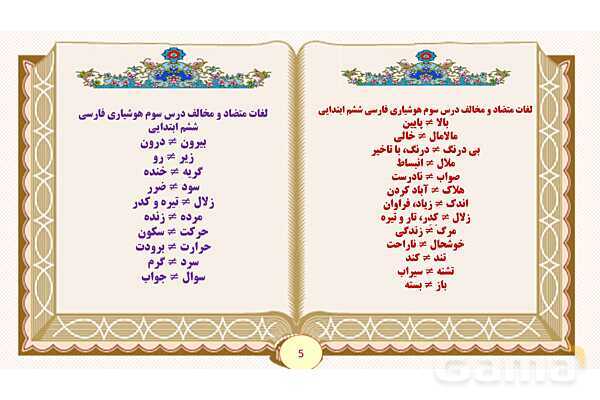 لغات متضاد و مخالف درس سوم هوشیاری فارسی ششم ابتدایی
بالا ≠ پایین
مالامال ≠ خالی
بی درنگ ≠ درنگ، با تاخیر
ملال ≠ انبساط
صواب ≠ نادرست
هلاک ≠ آباد کردن
اندک ≠ زیاد، فراوان
زلال ≠ کدر، تار و تیره
مرگ ≠ زندگی
خوشحال ≠ ناراحت
تند ≠ کند
تشنه ≠ سیراب
باز ≠ بسته
لغات متضاد و مخالف درس سوم هوشیاری فارسی
ششم ابتدایی
بیرون ≠ درون
زیر ≠ رو
گریه ≠ خنده
سود ≠ ضرر
زلال ≠ تیره و کدر
مرده ≠ زنده
حرکت ≠ سکون
حرارت ≠ برودت
سرد ≠ گرم
سوال ≠ جواب
5
Gama